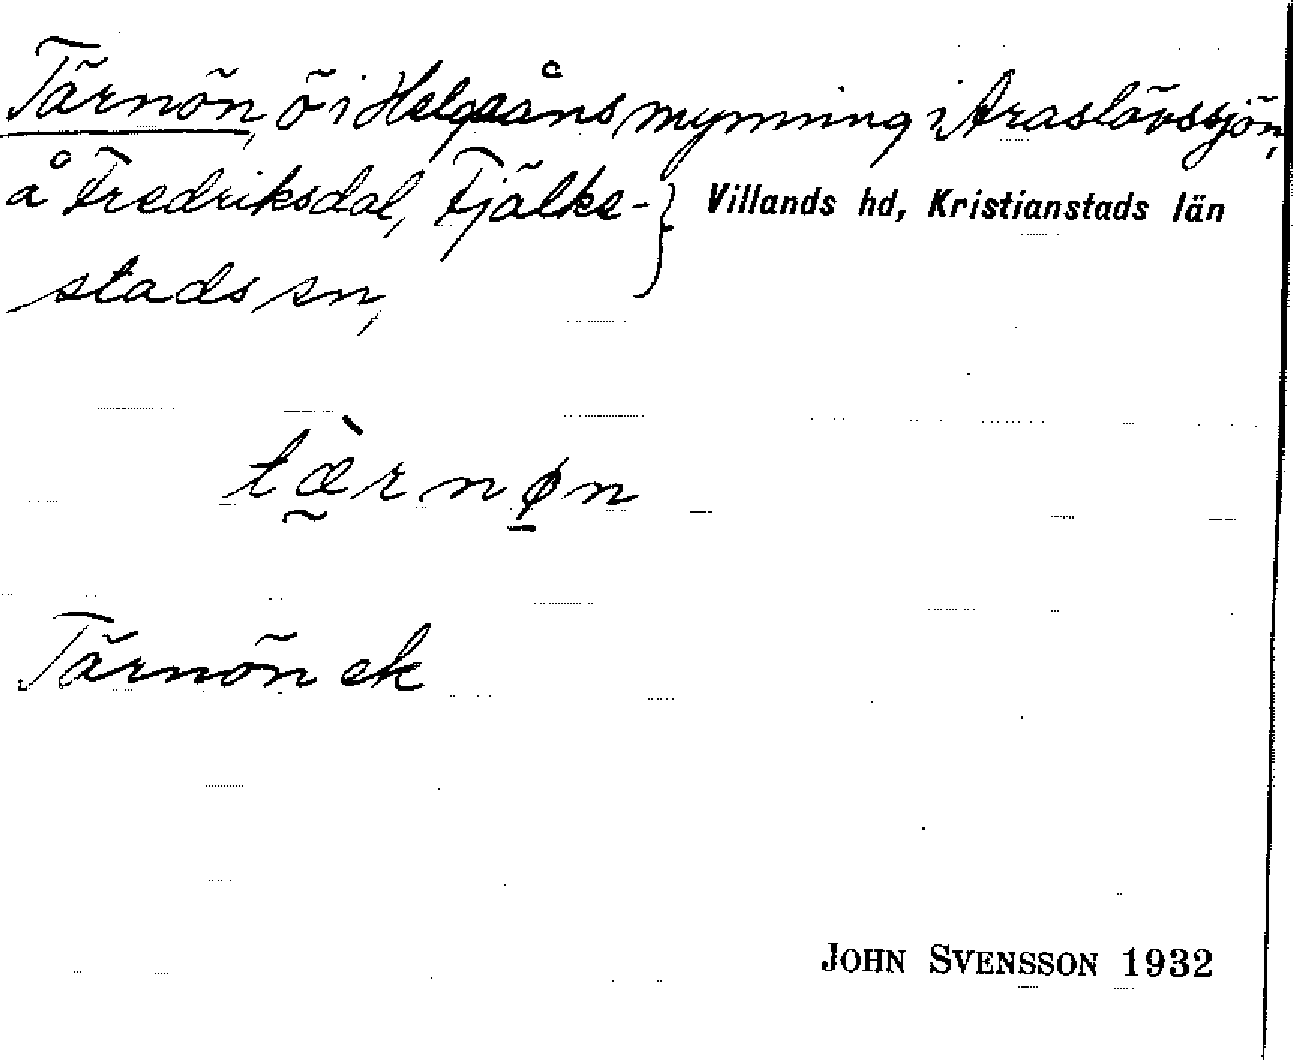 Tärnön, ö i Helgeåns mynning i Araslövssjön,
å Fredriksdal, Fjälke- } Villands hd, Kristianstads län
stads sn,
tæ̰̀rnø̱n
Tärnön ek
JOHN SVENSSON 1932